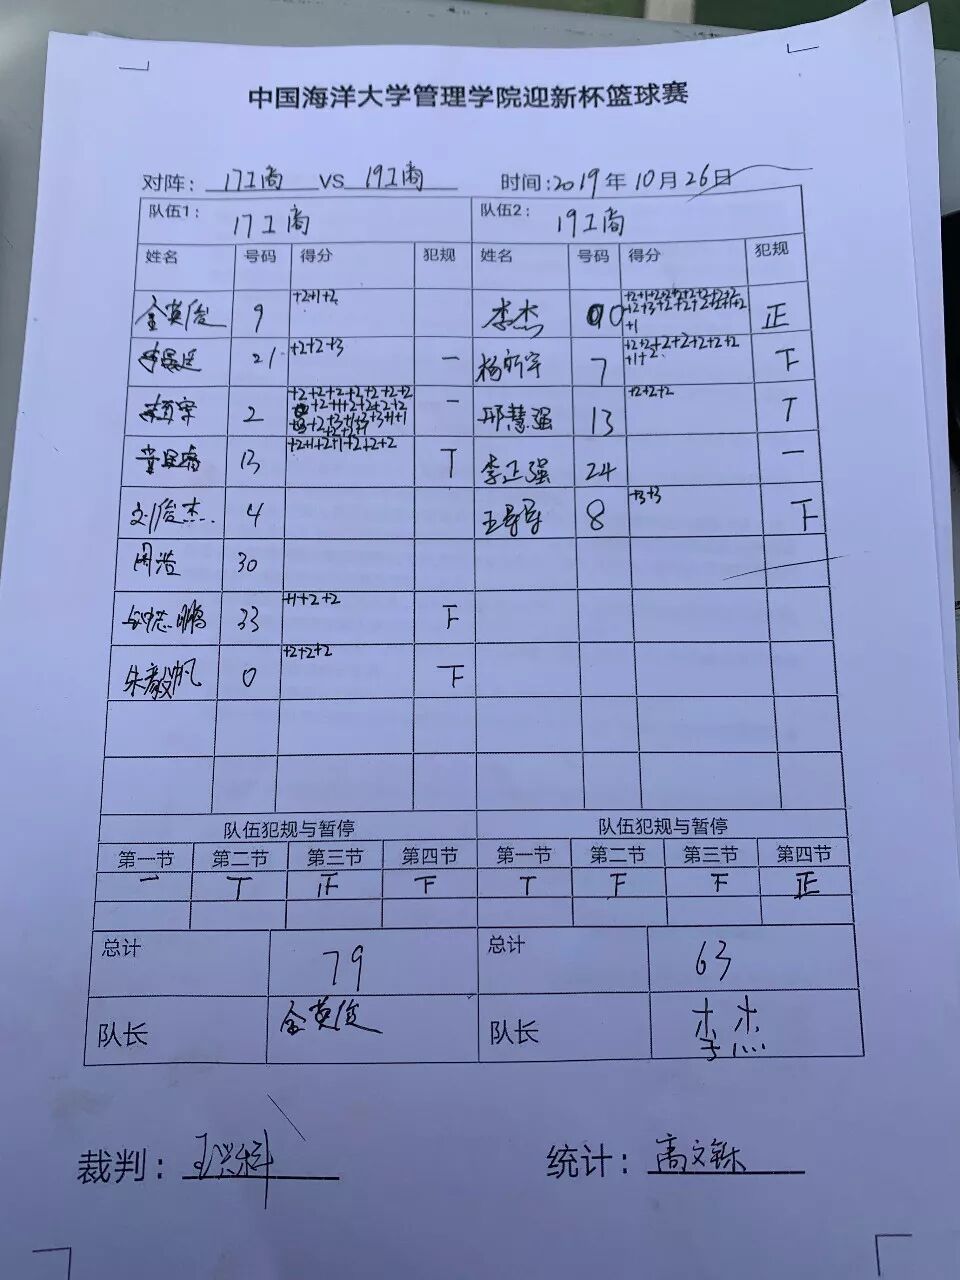 中国海洋大学管理学院迎新杯篮球赛
对阵: 17工商 VS 19工商 时间:2019年10月26日
队伍1: 17工商 队伍2: 19工商
姓名 号码 得分 犯规 姓名 号码 得分 犯规
金英俊 9 +2+1+2 李杰 0 正
21 +2+2+3 一 7 下
2 一 邢慧强 13 +2+2+2 T
13 +2+1+2+1+2+2+2 T 李正强 24 一
刘俊杰 4 8 +3+3 下
周浩 30
33 +1+2+2 下
朱毅帆 0 +2+2+2 下
队伍犯规与暂停 队伍犯规与暂停
第一节 第二节 第三节 第四节 第一节 第二节 第三节 第四节
一 T 正 下 T 下 下 正
总计 79 总计 63
队长 金英俊 队长 李杰
裁判: 统计: 高文铄